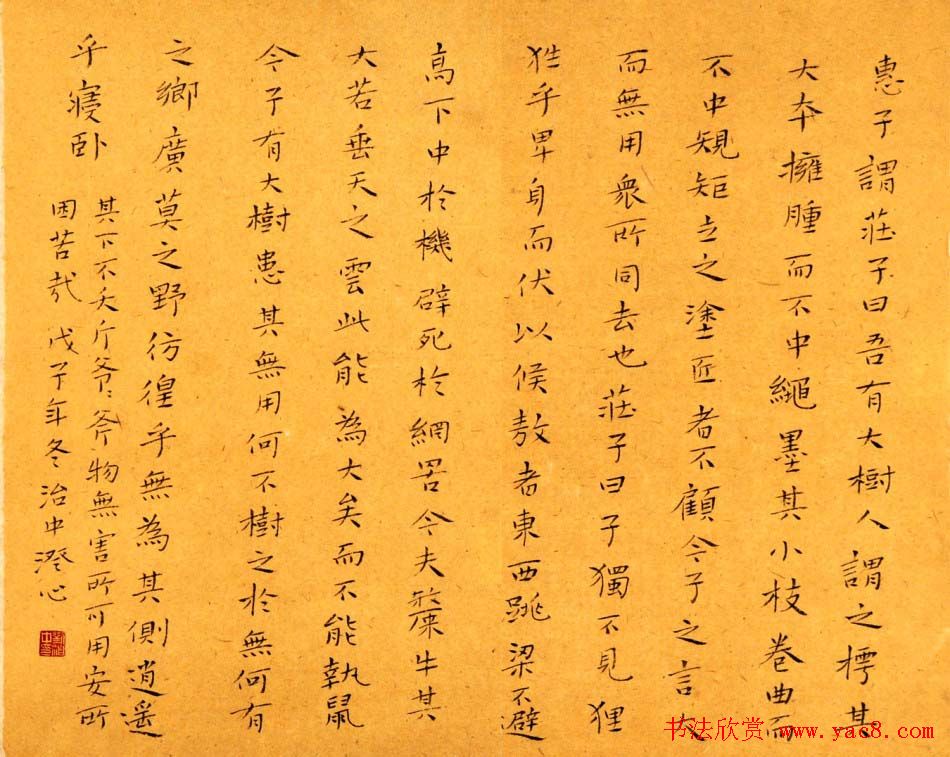 惠子謂莊子曰吾有大樹人謂之樗其
大本擁腫而不中繩墨其小枝卷曲而
不中規矩立之塗匠者不顧今子之言大
而無用衆所同去也莊子曰子獨不見狸
狌乎卑身而伏以候敖者東西跳梁不避
高下中於機辟死於網罟今夫斄牛其
大若垂天之雲此能為大矣而不能執鼠
今子有大樹患其無用何不樹之於無何有
之鄉廣莫之野彷徨乎無為其側逍遥
乎寢卧
其下不夭斤斧物無害所可用安所
困苦哉 戊子年冬治中澄心
书法欣赏 www.yac8.com